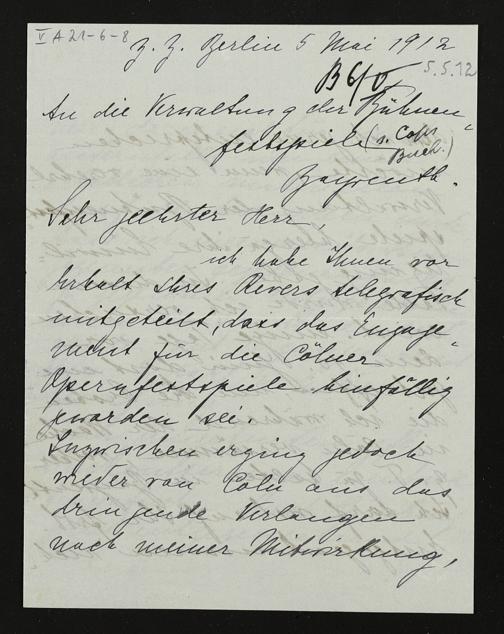 V A 21-6-8
z. Z. Berlin 5 Mai 1912
B 6/V
5.5.12
An die Verwaltung der Bühnen-
festspiele
(s. Cop
Buch.)
Bayreuth.
Sehr geehrter Herr,
ich habe Ihnen vor
Erhalt Ihres Revers telegrafisch
mitgeteilt, dass das Engage-
ment für die Cölner
Opernfestspiele hinfällig
geworden sei.
Inzwischen erging jedoch
wieder von Cöln aus das
dringende Verlangen
nach meiner Mitwirkung,